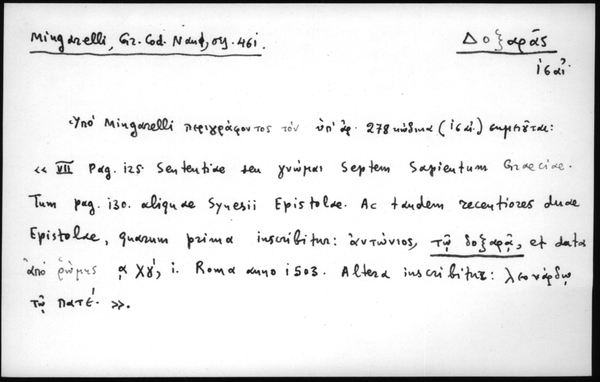 Mingarelli, Gr. Cod. Nani, σγ. 461.
Δοξαρᾶς
ις αἰ.
Ὑπό Mingarelli περιγράφοντος τόν ὑπ' ἀρ. 278 κώδικα (ις αἰ.) σημειοῦται:
« VII Pag. 125 Sententiae seu γνῶμαι Septem Sapientum Graeciae.
Tum pag. 130. aliquae Synesii Epistolae. Ac tandem recentiores duae
Epistolae, quarum prima inscribitur: ἀντώνιος, τῷ δοξαρᾷ, et data
ἀπό ῥώμης α χγ΄, i. Roma anno 1503. Altera inscribitur: λεονάρδῳ
τῷ πατέ. ».